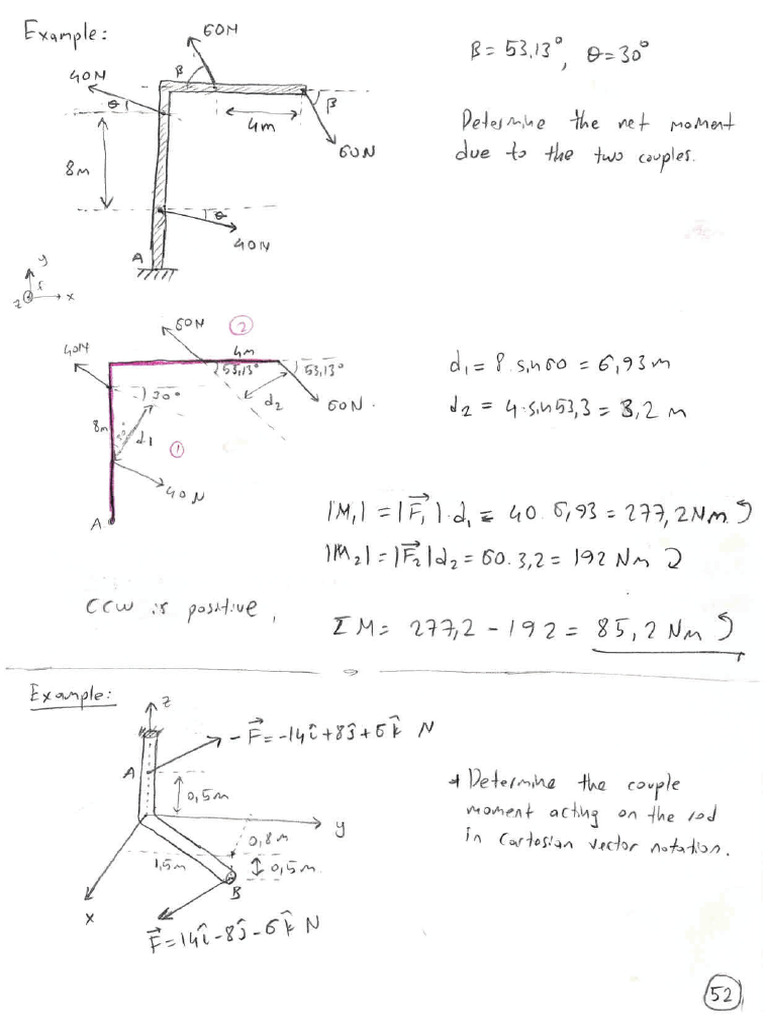 Example:
60N
β = 53,13°, θ = 30°
40N
β
θ
β
4m
60N
Determine the net moment
due to the two couples.
8m
θ
40N
A
y
z
x
60N
②
40N
4m
53,13°
53,13°
30°
d₂
60N.
8m
30°
d₁
①
40N
A
d₁ = 8.sin60 = 6,93 m
d₂ = 4.sin53,3 = 3,2 m
|M₁| = |F⃗₁|.d₁ = 40.6,93 = 277,2 Nm ↺
|M₂| = |F⃗₂|d₂ = 60.3,2 = 192 Nm ↻
CCW is positive,
ΣM = 277,2 - 192 = 85,2 Nm ↺
Example:
z
-F⃗ = -14î+8ĵ+6k̂ N
A
0,5m
y
0,8m
1,5m
0,5m
B
x
F⃗ = 14î-8ĵ-6k̂ N
* Determine the couple
moment acting on the rod
in Cartesian vector notation.
52